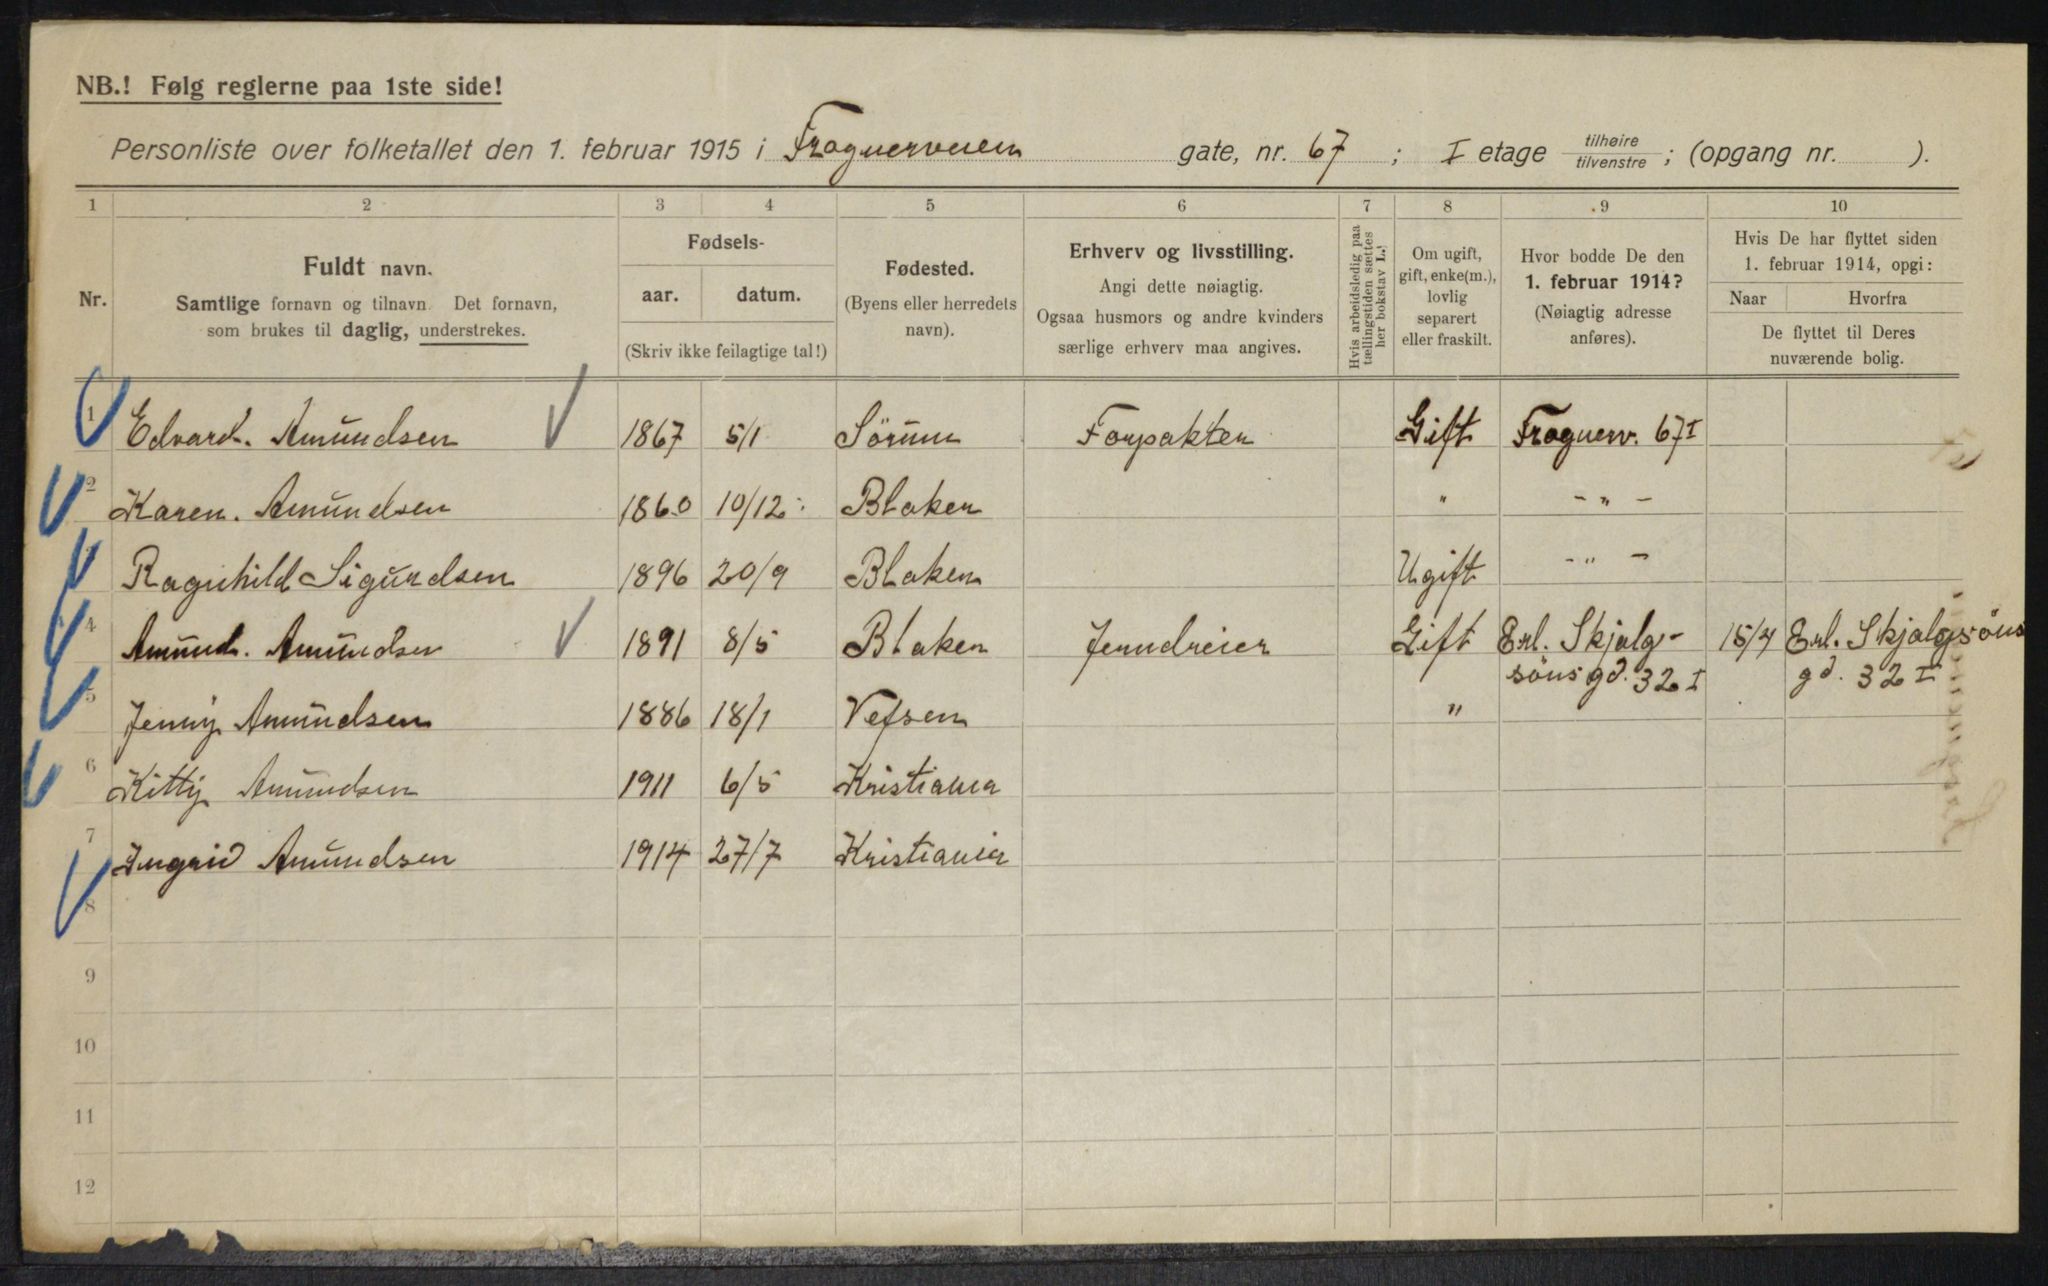 NB.! Følg reglerne paa 1ste side!
Personliste over folketallet den 1. februar 1915 i Frognerveien gate, nr. 67 ; I etage tilhøire tilvenstre ; (opgang nr. ).
1 2 3 4 5 6 7 8 9 10
Nr.
Fuldt navn.
Samtlige fornavn og tilnavn. Det fornavn,
som brukes til daglig, understrekes.
Fødsels-
aar. datum.
(Skriv ikke feilagtige tal!)
Fødested.
(Byens eller herredets
navn).
Erhverv og livsstilling.
Angi dette nøiagtig.
Ogsaa husmors og andre kvinders
særlige erhverv maa angives.
Hvis arbeidsledig paa
tællingstiden sættes
her bokstav L.!
Om ugift,
gift, enke(m.),
lovlig
separert
eller fraskilt.
Hvor bodde De den
1. februar 1914?
(Nøiagtig adresse
anføres).
Hvis De har flyttet siden
1. februar 1914, opgi:
Naar Hvorfra
De flyttet til Deres
nuværende bolig.
1 Edvard. Amundsen 1867 5/1 Sörum Forpakter Gift Frognerv. 67 I
2 Karen. Amundsen 1860 10/12 Blaker " - " -
Ragnhild Sigurdsen 1896 20/9 Blaker Ugift - " -
4 Amund. Amundsen 1891 8/5 Blaker Jerndreier Gift Erl. Skjalg- 15/4 Erl. Skjalgsöns
sönsgd. 32 I gd. 32 I
5 Jenny Amundsen 1886 18/1 Vefsen "
6 Kitty Amundsen 1911 6/5 Kristiania
7 Ingrid Amundsen 1914 27/7 Kristiania
8
9
10
11
12